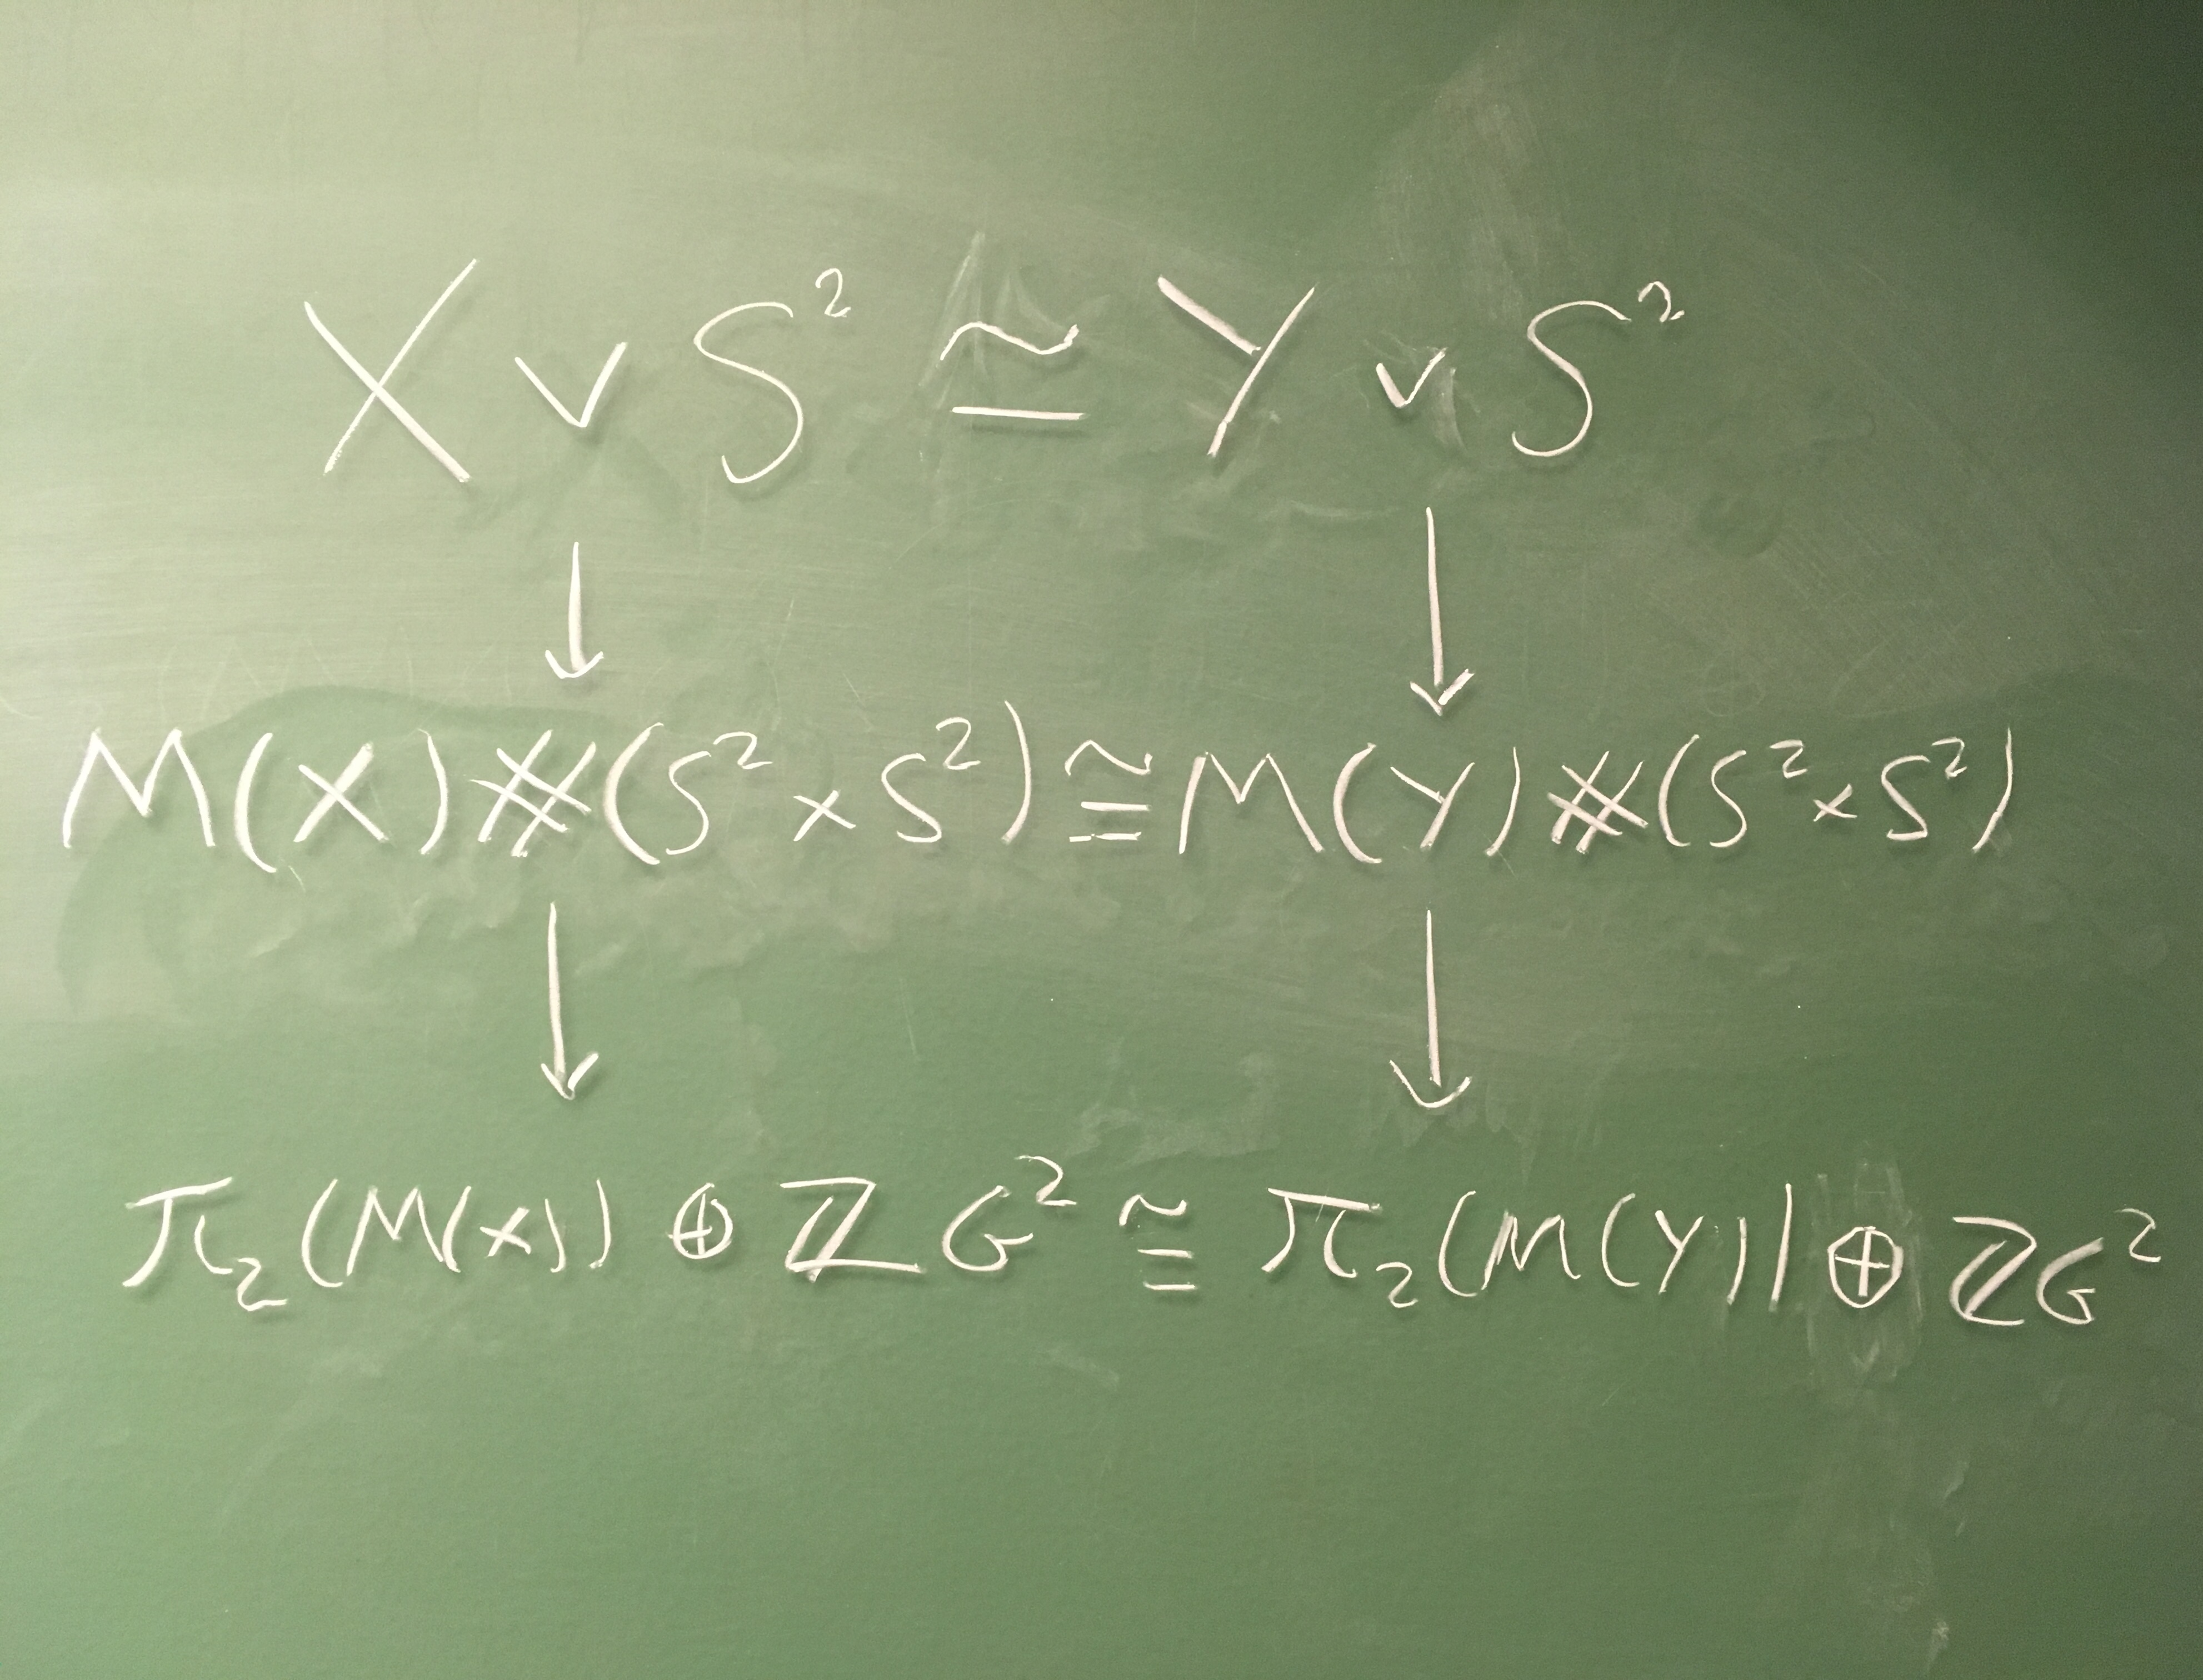 X ∨ S² ≃ Y ∨ S²
↓ ↓
M(X)#(S²×S²) ≅ M(Y)#(S²×S²)
↓ ↓
π₂(M(X)) ⊕ ℤG² ≅ π₂(M(Y)) ⊕ ℤG²